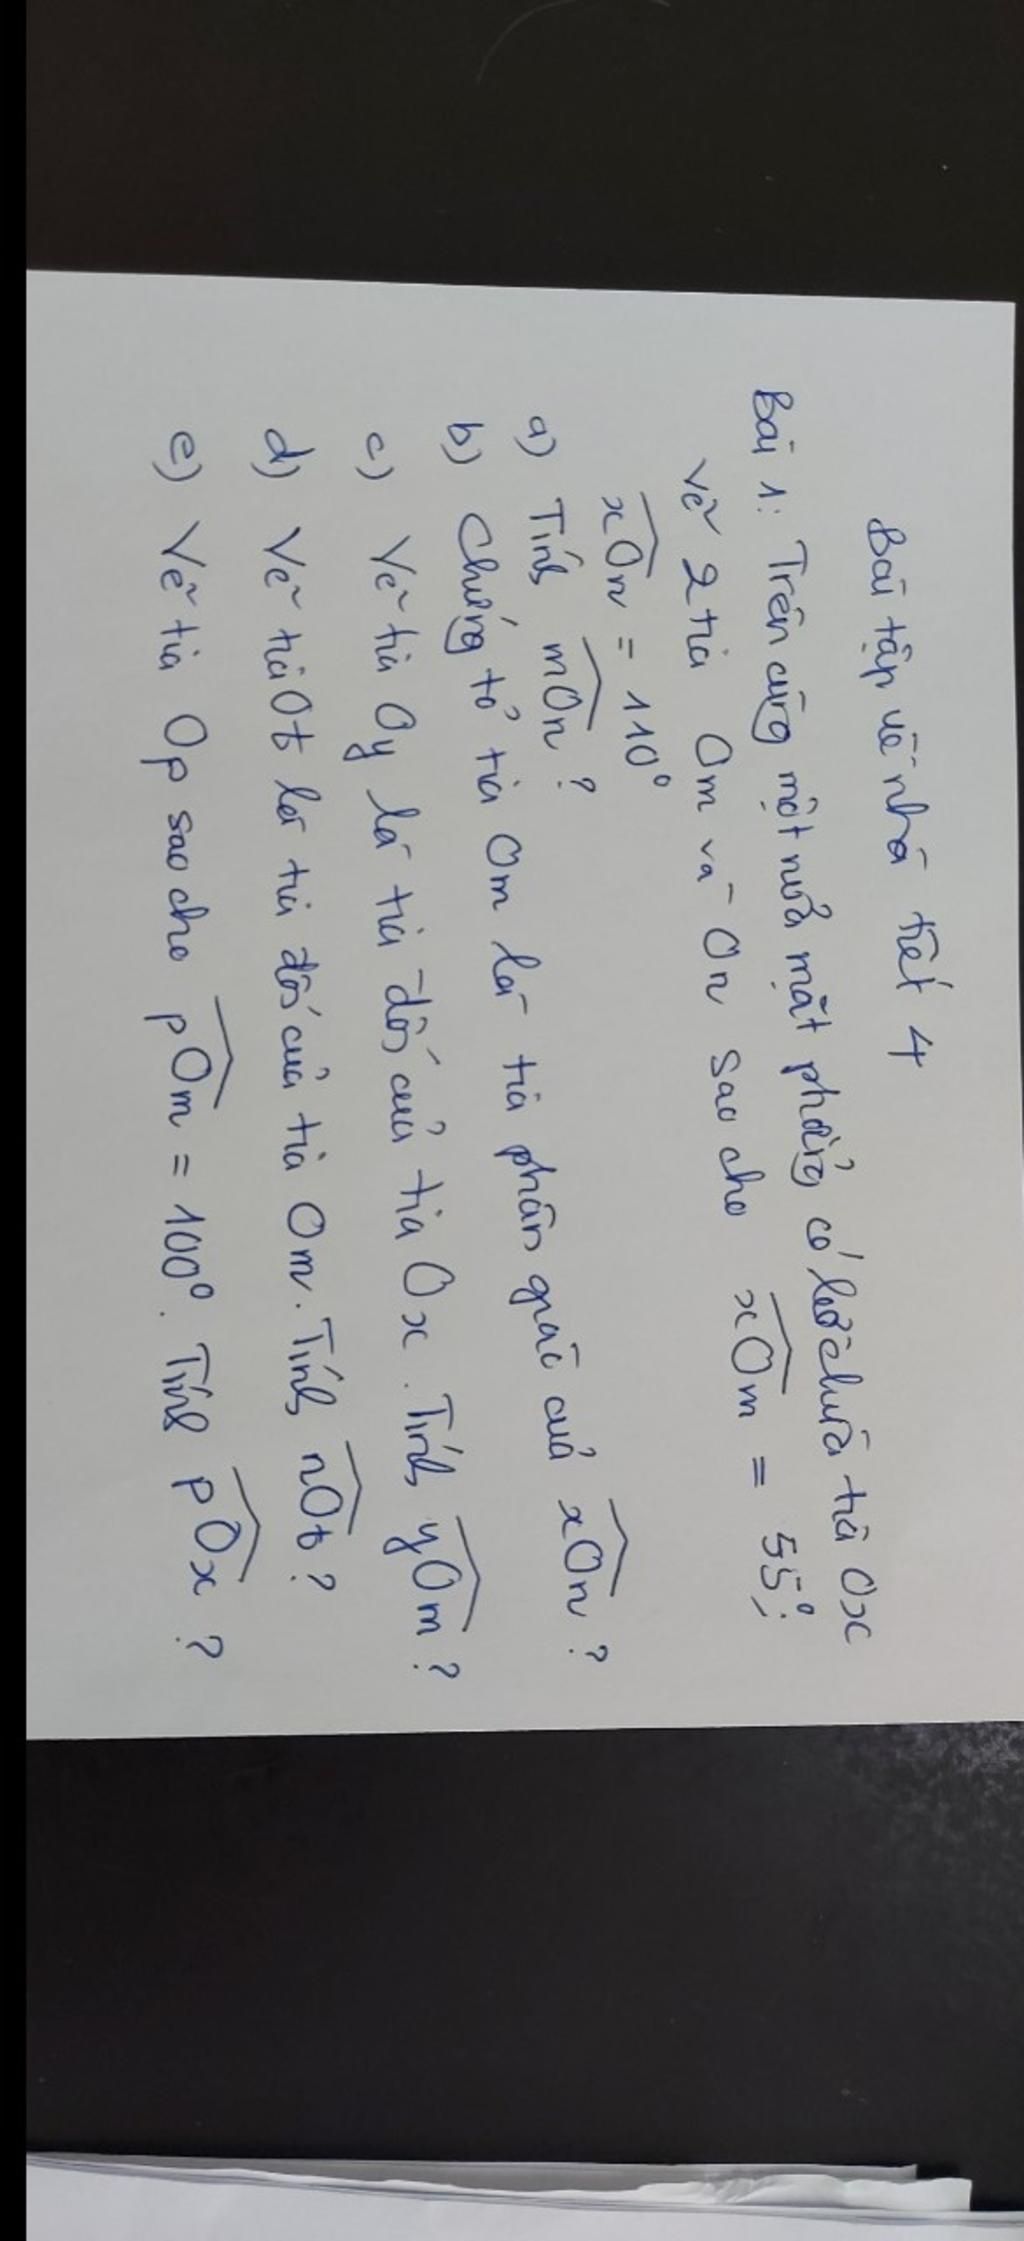 Bài tập về nhà tiết 4
Bài 1: Trên cùng một nửa mặt phẳng có bờ chứa tia Ox
vẽ 2 tia Om và On sao cho xOm = 55°;
xOn = 110°
a) Tính mOn?
b) Chứng tỏ tia Om là tia phân giác của xOn?
c) Vẽ tia Oy là tia đối của tia Ox. Tính yOm?
d) Vẽ tia Ot là tia đối của tia Om. Tính nOt?
e) Vẽ tia Op sao cho pOm = 100°. Tính pOx?